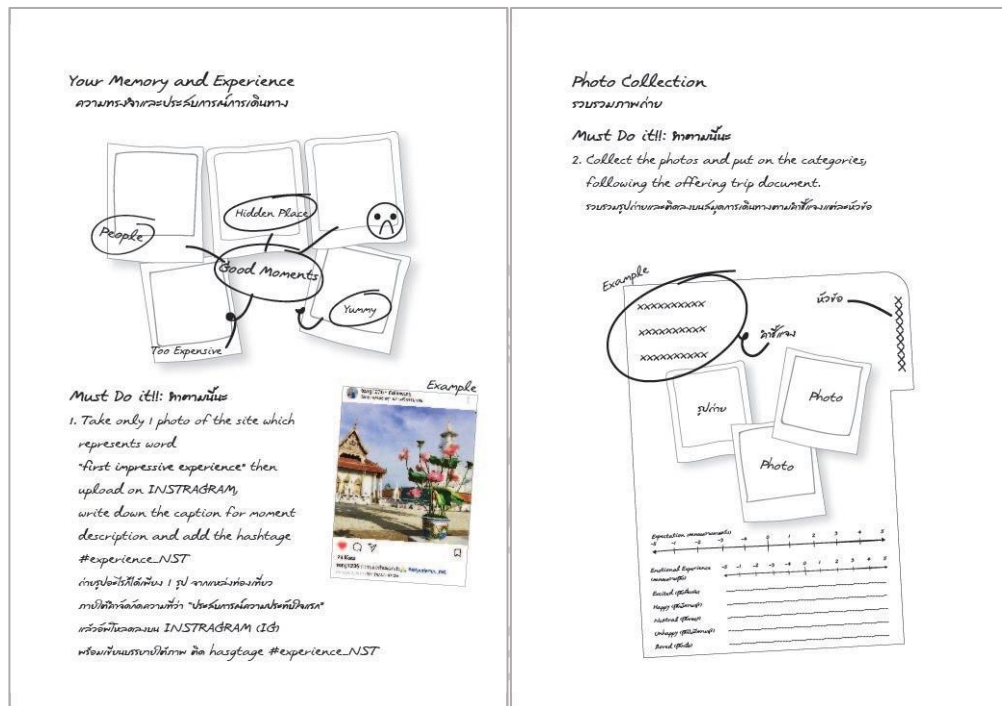 Your Memory and Experience
ความทรงจำและประสบการณ์การเดินทาง
People
Hidden Place
Good Moments
Yummy
Too Expensive
Must Do it!!: ทำตามนี้นะ
1. Take only 1 photo of the site which
represents word
"first impressive experience" then
upload on INSTRAGRAM,
write down the caption for moment
description and add the hashtage
#experience_NST
ถ่ายรูปอะไรก็ได้เพียง 1 รูป จากแหล่งท่องเที่ยว
ภายใต้คำจำกัดความที่ว่า "ประสบการณ์ความประทับใจแรก"
แล้วอัพโหลดลงบน INSTRAGRAM (IG)
พร้อมเขียนบรรยายใต้ภาพ ติด hasgtage #experience_NST
Example
Photo Collection
รวบรวมภาพถ่าย
Must Do it!!: ทำตามนี้นะ
2. Collect the photos and put on the categories,
following the offering trip document.
รวบรวมรูปถ่ายและติดลงบนสมุดการเดินทางตามคำชี้แจงแต่ละหัวข้อ
Example
xxxxxxxxxx
xxxxxxxxxx
xxxxxxxxxx
หัวข้อ
คำชี้แจง
xxxxxxxxxx
รูปถ่าย
Photo
Photo
Expectation
-5 -4 -3 -2 -1 0 1 2 3 4 5
Emotional Experience
-5 -4 -3 -2 -1 0 1 2 3 4 5
Excited
Happy
Neutral
Unhappy
Bored